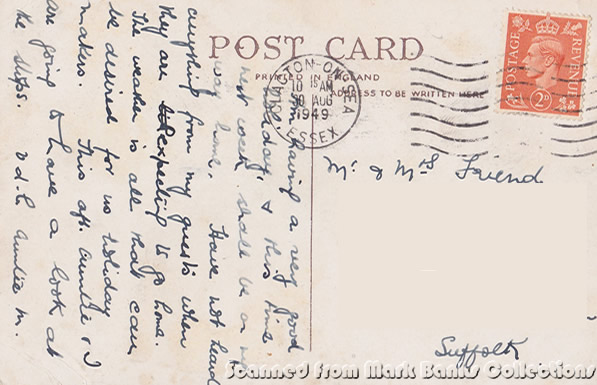 POST CARD
PRINTED IN ENGLAND
ADDRESS TO BE WRITTEN HERE
TON-ON-SEA
10 15 AM
30 AUG
1949
ESSEX
POSTAGE
REVENUE
2D
Mr & Mrs Friend
Suffolk
Am having a very good
holiday, & this time
next week shall be on my
way home. Have not heard
anything from my guests when
they are expecting to go home.
The weather is all that can
be desired for us holiday
makers. This aft. Auntie & I
are going to have a look at
the ships. Auntie M.
Scanned from Mark Banks Collections